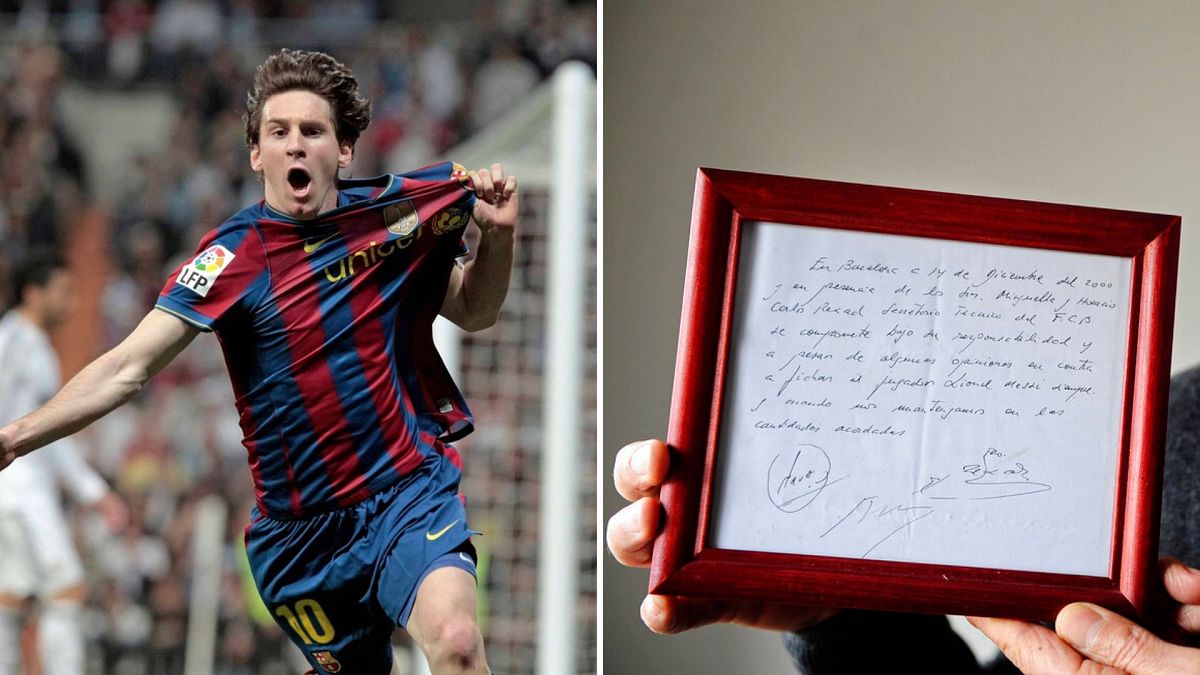 LFP
unicef
10
En Barcelona a 14 de Diciembre del 2000
y en presencia de los Srs. Minguella y Horacio
Carlos Rexach Secretario Tecnico del F.C.B
se compromete bajo su responsabilidad y
a pesar de algunas opiniones en contra
a fichar al jugador Lionel Messi siempre
y cuando nos mantengamos en las
cantidades acordadas